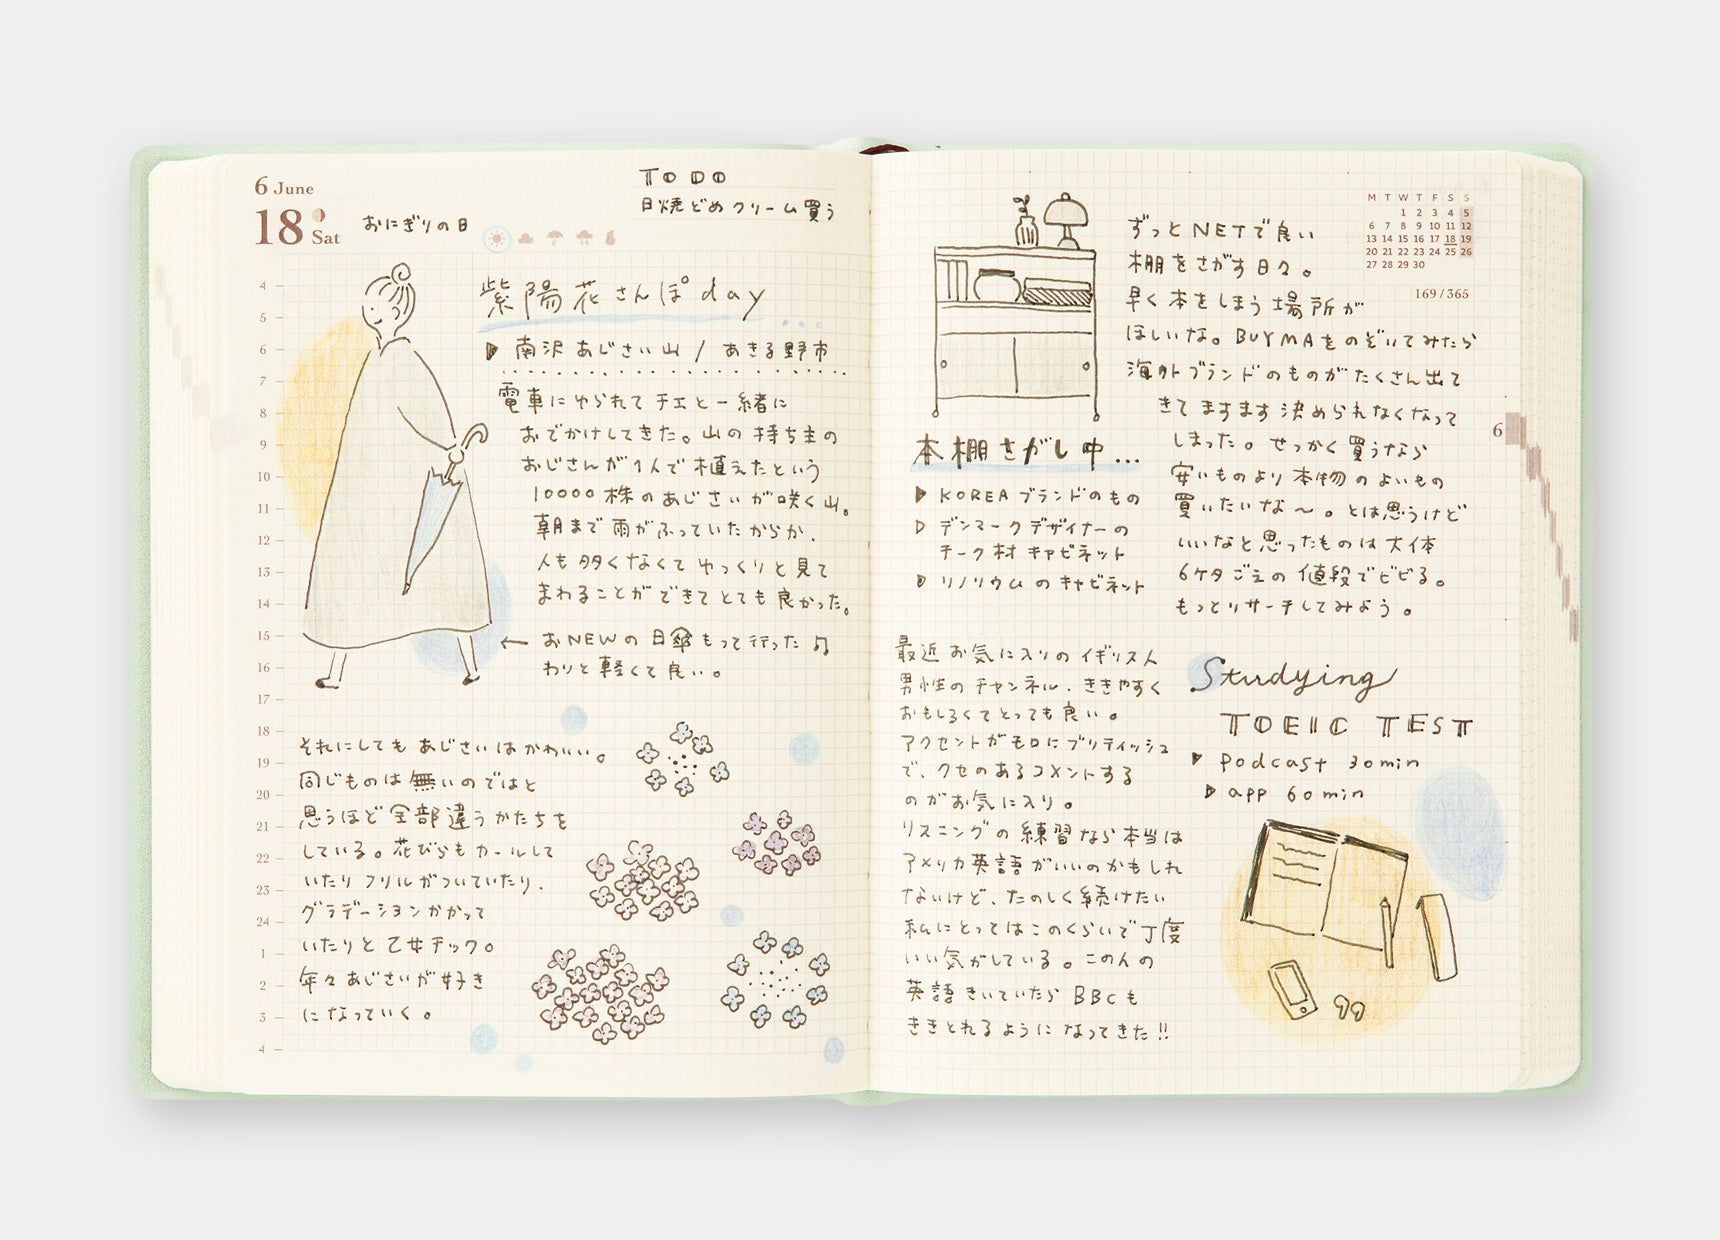 6 June
18 Sat
おにぎりの日
TO DO
日焼どめクリーム買う
紫陽花さんぽday
南沢あじさい山 / あきる野市
電車にゆられてチエと一緒に
おでかけしてきた。山の持ち主の
おじさんが1人で植えたという
10000株のあじさいが咲く山。
朝まで雨がふっていたからか、
人も多くなくてゆっくりと見て
まわることができてとても良かった。
← おNEWの日傘もって行った♫
わりと軽くて良い。
それにしてもあじさいはかわいい。
同じものは無いのではと
思うほど全部違うかたちを
している。花びらもカールして
いたりフリルがついていたり、
グラデーションかかって
いたりと乙女チック。
年々あじさいが好き
になっていく。
4
5
6
7
8
9
10
11
12
13
14
15
16
17
18
19
20
21
22
23
24
1
2
3
4
ずっとNETで良い
棚をさがす日々。
早く本をしまう場所が
ほしいな。BUYMAをのぞいてみたら
海外ブランドのものがたくさん出て
きてますます決められなくなって
しまった。せっかく買うなら
安いものより本物のよいもの
買いたいな〜。とは思うけど
いいなと思ったものは大体
6ケタごえの値段でビビる。
もっとリサーチしてみよう。
M T W T F S S
1 2 3 4 5
6 7 8 9 10 11 12
13 14 15 16 17 18 19
20 21 22 23 24 25 26
27 28 29 30
169/365
6
本棚さがし中...
KOREAブランドのもの
デンマークデザイナーの
チーク材キャビネット
リノリウムのキャビネット
最近お気に入りのイギリス人
男性のチャンネル、ききやすく
おもしろくてとっても良い。
アクセントがモロにブリティッシュ
で、クセのあるコメントする
のがお気に入り。
リスニングの練習なら本当は
アメリカ英語がいいのかもしれ
ないけど、たのしく続けたい
私にとってはこのくらいで丁度
いい気がしている。この人の
英語きいていたらBBCも
ききとれるようになってきた!!
Studying
TOEIC TEST
podcast 30min
app 60min